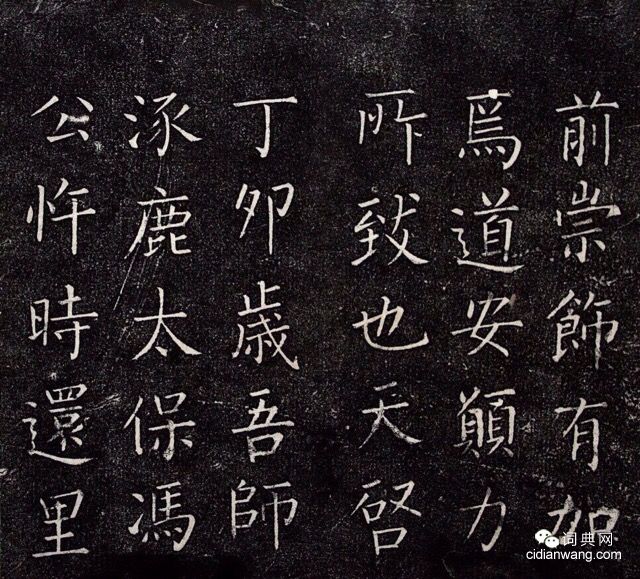 前崇飾有加
焉道安顛力
所致也天啓
丁卯歲吾師
涿鹿太保馮
公忤時還里
词典网
cidianwang.com